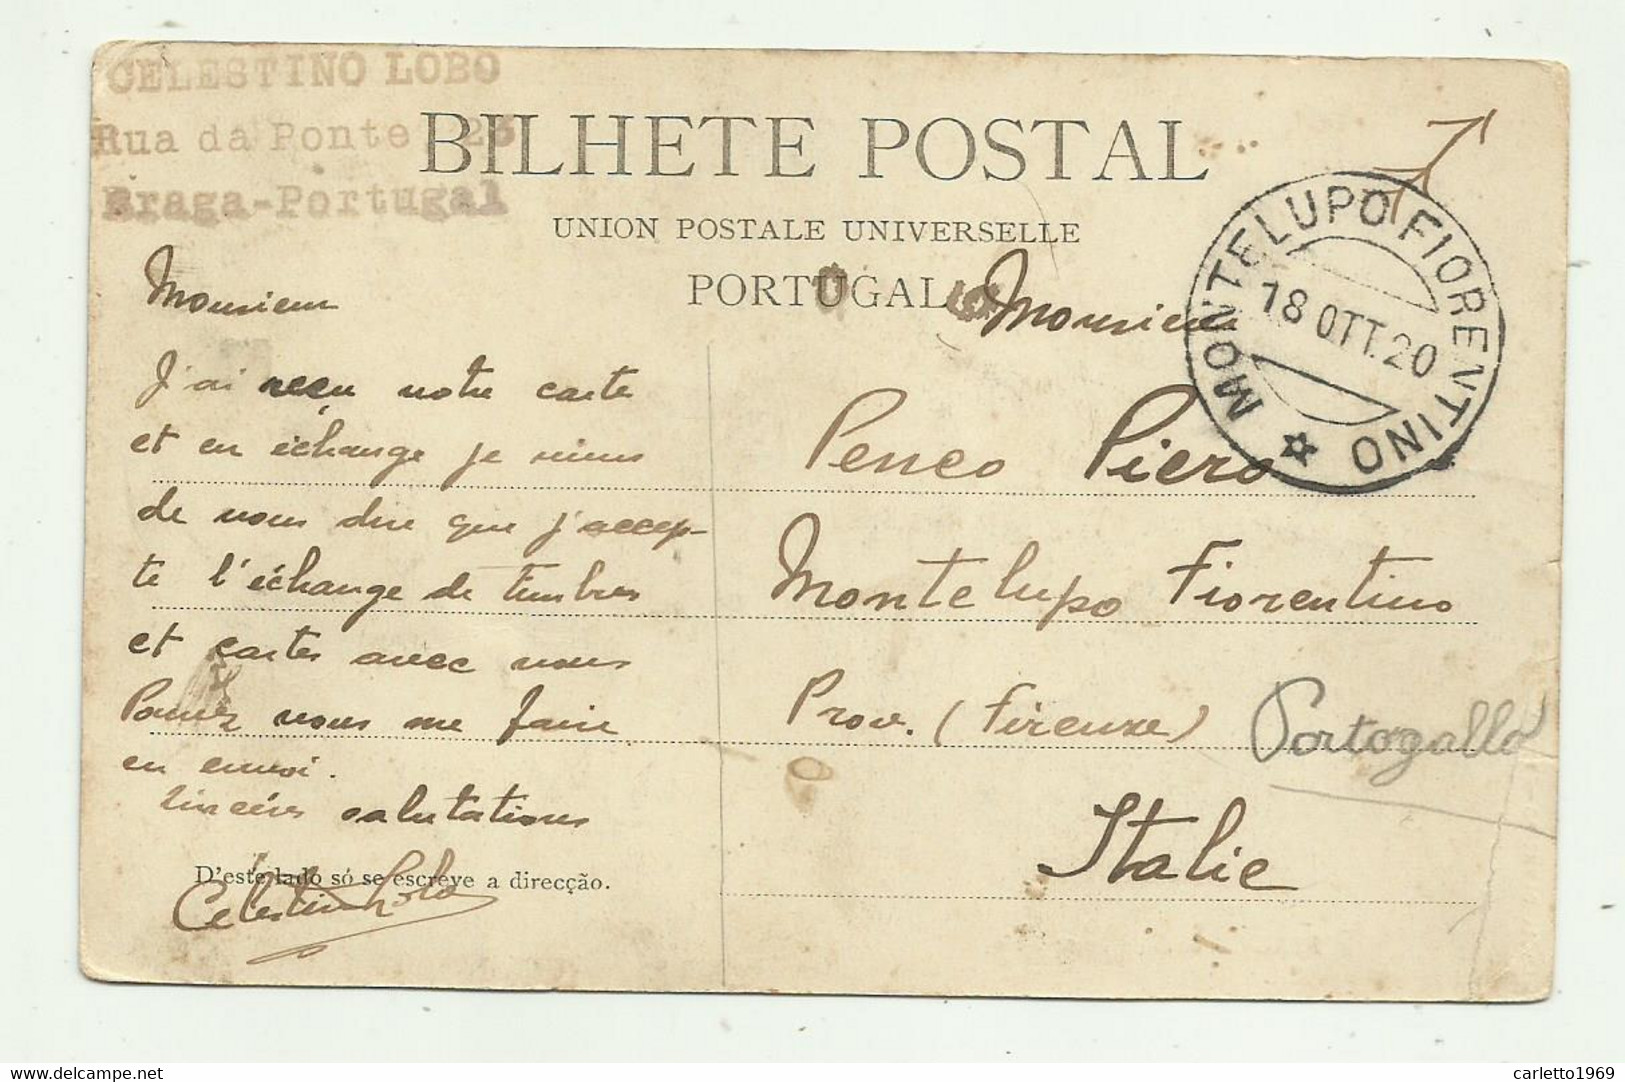 CELESTINO LOBO
Rua da Ponte 23
Braga-Portugal
BILHETE POSTAL
UNION POSTALE UNIVERSELLE
PORTUGAL
MONTELUPO FIORENTINO
18 OTT. 20
Monsieur
J'ai reçu votre carte
et en échange je viens
de vous dire que j'accep-
te l'échange de timbres
et cartes avec vous
Pouvez vous me faire
en envoi.
Sincéres salutations
D'este lado só se escreve a direcção.
Celestino Lobo
Monsieur
Penco Piero
Montelupo Fiorentino
Prov. (Firenze)
Portogallo
Italie
carletto1969